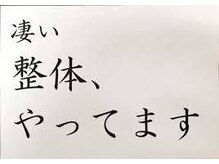 凄い
整体、
やってます